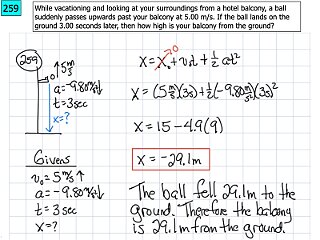 259
While vacationing and looking at your surroundings from a hotel balcony, a ball
suddenly passes upwards past your balcony at 5.00 m/s. If the ball lands on the
ground 3.00 seconds later, then how high is your balcony from the ground?
259
↑5 m/s
a=-9.80 m/s² ↓
t=3sec
x=?
x = x₀ + v₀t + ½at²
0
x = (5 m/s)(3s) + ½(-9.80 m/s²)(3s)²
x = 15 - 4.9(9)
x = -29.1m
Givens
v₀ = 5 m/s ↑
a = -9.80 m/s² ↓
t = 3 sec
x = ?
The ball fell 29.1m to the
ground. Therefore the balcony
is 29.1m from the ground.